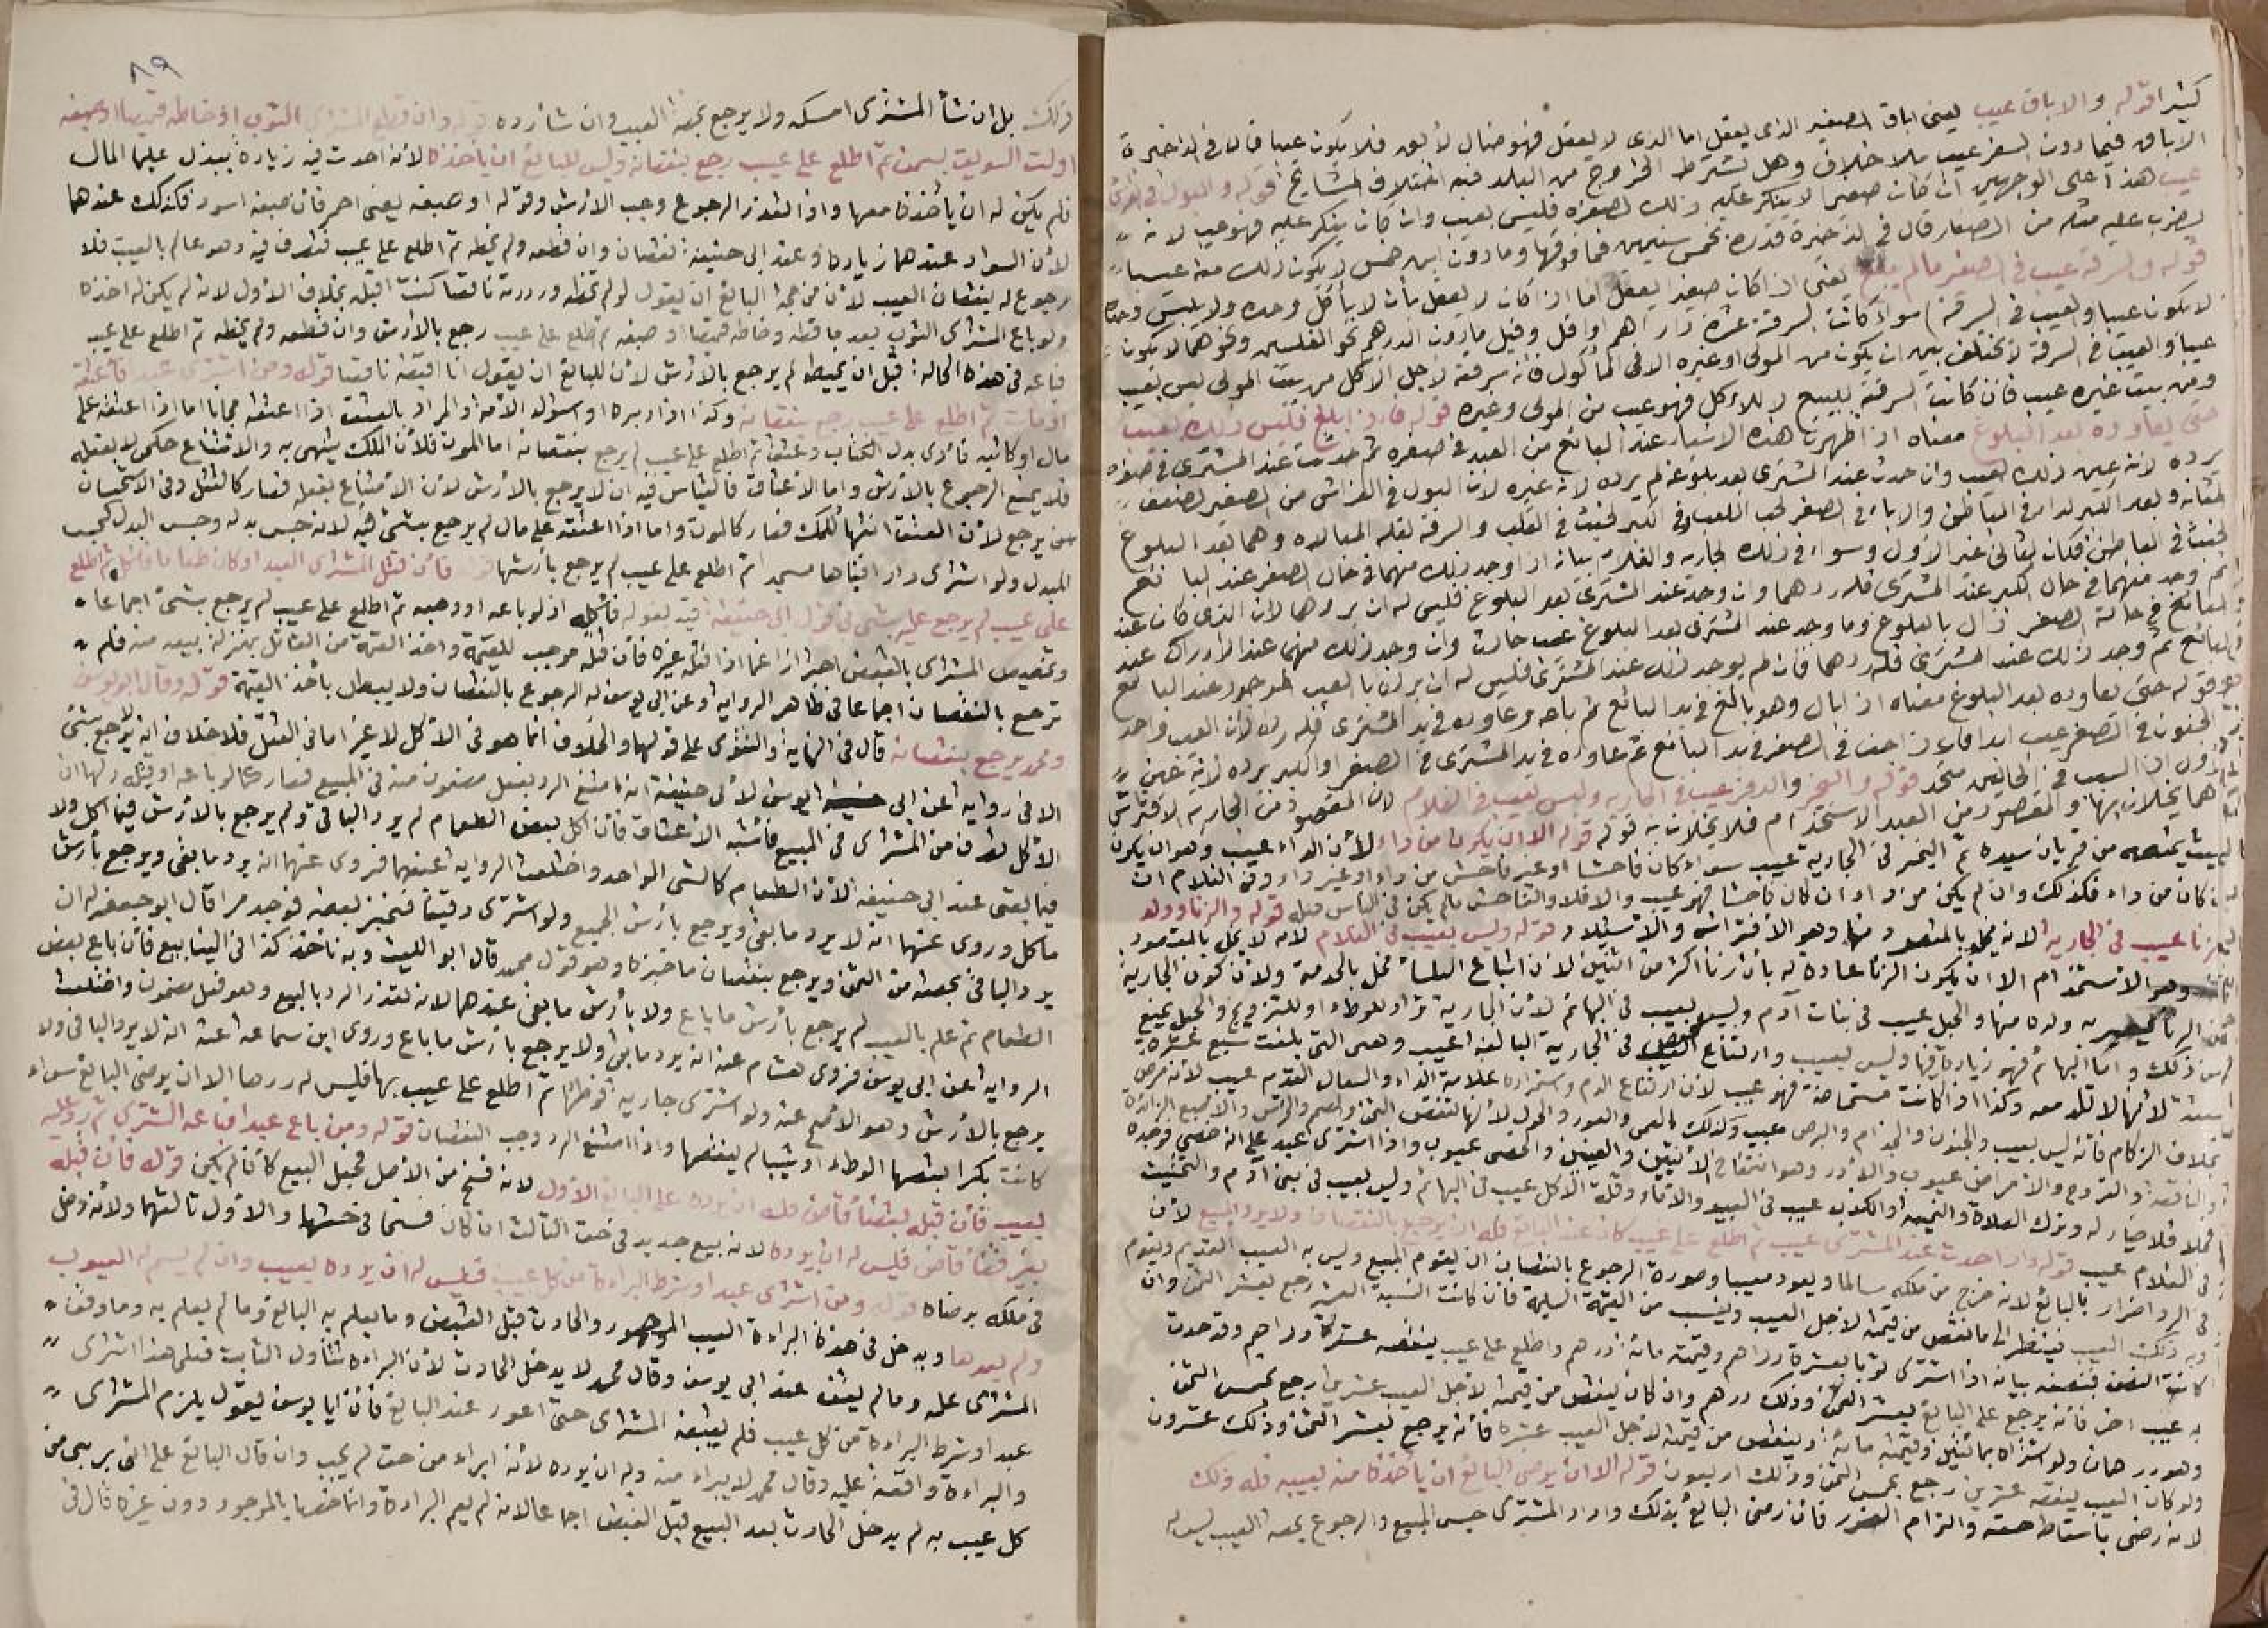 كثيرا قوله والاباق عيب يعني اباق الصغير الذي يعقل اما الذي لا يعقل فهو ضال لا آبق فلا يكون عيبا قال في الذخيرة
الاباق فيما دون السفر عيب بلا خلاف وهل يشترط الخروج من البلد فيه اختلاف المشايخ قوله والبول في الفراش
عيب هذا على الوجهين ان كان صغيرا لا ينكر عليه ذلك لصغره فليس بعيب وان كان ينكر عليه فهو عيب لانه
يضرب عليه مثله من الصغار قال في الذخيرة قدره بخمس سنين فما فوقها وما دون ابن خمس لا يكون ذلك منه عيبا
قوله والسرقة عيب في الصغير ما لم يبلغ يعني اذا كان صغيرا يعقل اما اذا كان لا يعقل بان لا يأكل وحده ولا يلبس وحده
لا يكون عيبا والعيب في السرقة سواء كانت السرقة عشرة دراهم او اقل وقيل ما دون الدرهم نحو الفلسين ونحوهما لا يكون
عيبا والعيب في السرقة لا يختلف بين ان يكون من المولى او غيره الا في المأكول فان سرقته لاجل الاكل من بيت المولى ليس بعيب
ومن بيت غيره عيب فان كانت السرقة للبيع لا للاكل فهو عيب من المولى وغيره قوله فاذا بلغ فليس ذلك بعيب
حتى يعاوده بعد البلوغ معناه اذا ظهرت هذه الاشياء عند البائع من العبد في صغره ثم حدثت عند المشتري في صغره
يرده لانه عين ذلك العيب وان حدث عند المشتري بعد بلوغه لم يرده لانه غيره لان البول في الفراش من الصغير لضعف
المثانة وبعد الكبر لداء في الباطن والاباق في الصغر لحب اللعب وفي الكبر لخبث في القلب والسرقة لقلة المبالاة وهما بعد البلوغ
لخبث في الباطن فكان الثاني غير الاول وسواء في ذلك الجارية والغلام بيانه اذا وجد ذلك منهما في حال الصغر عند البائع
ثم وجد منهما في حال الكبر عند المشتري فله ردهما وان وجد عند المشتري بعد البلوغ فليس له ان يردهما لان الذي كان عند
البائع في حالة الصغر زال بالبلوغ وما وجد عند المشتري بعد البلوغ عيب حادث وان وجد ذلك منهما عند الادراك عند
البائع ثم وجد ذلك عند المشتري فله ردهما فان لم يوجد ذلك عند المشتري فليس له ان يرده بالعيب الموجود عند البائع
قوله حتى يعاوده بعد البلوغ معناه اذا بال وهو بالغ في يد البائع ثم باعه وعاوده في يد المشتري فله رده لان العيب واحد
الجنون في الصغر عيب ابدا فاذا جن في الصغر في يد البائع ثم عاوده في يد المشتري في الصغر او الكبر يرده لانه عين
الاول اذ السبب في الحالين متحد قوله والبخر والدفر عيب في الجارية وليس بعيب في الغلام لان المقصود من الجارية الافتراش
وهما يخلان بها والمقصود من العبد الاستخدام فلا يخلان به قوله الا ان يكون من داء لأن الداء عيب وهو ان يكون
بحيث يمنعه من قربان سيده ثم البخر في الجارية عيب سواء كان فاحشا او غير فاحش من داء او غير داء وفي الغلام ان
كان من داء فكذلك وان لم يكن من داء ان كان فاحشا فهو عيب والا فلا والفاحش ما لم يكن في الناس مثله قوله والزنا وولد
الزنا عيب في الجارية لانه يخل بالمقصود منها وهو الافتراش والاستيلاد قوله وليس بعيب في الغلام لانه لا يخل بالمقصود
وهو الاستخدام الا ان يكون الزنا عادة له بان زنا اكثر من اثنين لان اتباع النساء مخل بالخدمة ولأن كون الجارية
من الزنا يعير به ولده منها والحبل عيب في بنات آدم وليس بعيب في البهائم لان الجارية تراد للوطء او للتزويج والحبل يمنع
من ذلك واما البهائم فهو زيادة فيها وليس بعيب وارتفاع الحيض في الجارية البالغة عيب وهي التي بلغت سبع عشرة
سنة لانها لا تلد معه وكذا اذا كانت مستحاضة فهو عيب لأن ارتفاع الدم واستمراره علامة الداء والسعال القديم عيب لأنه مرض
بخلاف الزكام فانه ليس بعيب والجنون والجذام والبرص عيب وكذلك العمى والعور والحول لأنها تنقص الثمن والصمم والخرس والاصبع الزائدة
والناقصة والقروح والأمراض عيوب والأدر وهو انتفاخ الأنثيين والعنين والخصي عيوب واذا اشترى عبد على انه خصي فوجده
فحلا فلا خيار له وترك الصلاة والنميمة والكذب عيب في العبيد والاماء وقلة الاكل عيب في البهائم وليس بعيب في بني آدم والتخنيث
في الغلام عيب قوله واذا حدث عند المشتري عيب ثم اطلع على عيب كان عند البائع فله ان يرجع بالنقصان ولا يرد المبيع لأن
في الرد اضرارا بالبائع لانه خرج من ملكه سالما ويعود معيبا وصورة الرجوع بالنقصان ان يقوم المبيع وليس به العيب القديم ويقوم
وبه ذلك العيب فينظر الى ما نقص من قيمته لاجل العيب وينسب من القيمة السليمة فان كانت النسبة العشر رجع بعشر الثمن وان
كانت النصف فنصفه بيانه اذا اشترى ثوبا بعشرة دراهم وقيمته مائة درهم واطلع على عيب ينقصه عشرة دراهم وقد حدث
به عيب اخر فأنه يرجع على البائع بعشر الثمن وذلك درهم وان كان ينقص من قيمته لاجل العيب عشرين رجع بخمس الثمن
وهو درهمان ولو اشتراه بمائتين وقيمته مائة وينقص من قيمته لاجل العيب عشرة فأنه يرجع بعشر الثمن وذلك عشرون
ولو كان العيب ينقصه عشرين رجع بخمس الثمن وذلك اربعون قوله الا ان يرضى البائع ان يأخذه منه بعيبه فله ذلك
لانه رضي باسقاط حقه والتزام الضرر فان رضي البائع بذلك واراد المشتري حبس المبيع والرجوع بحصة العيب ليس له
٨٩
ذلك بل ان شأ المشتري امسكه ولا يرجع بحصة العيب وان شاء رده قوله وان قطع المشتري الثوب او خاطه قميصا او صبغه
او لت السويق بسمن ثم اطلع على عيب رجع بنقصانه وليس للبائع ان يأخذه لأنه احدث فيه زيادة يبذل عليها المال
فلم يكن له ان يأخذه معها واذا تعذر الرجوع وجب الارش وقوله او صبغه يعني احمر فان صبغه اسود فكذلك عندهما
لأن السواد عندهما زيادة وعند ابي حنيفة نقصان وان قطعه ولم يخطه ثم اطلع على عيب فتصرف فيه وهو عالم بالعيب فلا
رجوع له بنقصان العيب لأن من حجة البائع ان يقول لو لم تخطه ورددته ناقصا كنت اقبله بخلاف الاول لانه لم يكن له اخذه
ولو باع المشتري الثوب بعد ما قطعه وخاطه قميصا او صبغه ثم اطلع على عيب رجع بالأرش وان قطعه ولم يخطه ثم اطلع على عيب
فباعه في هذه الحالة قبل ان يخيطه لم يرجع بالأرش لأن للبائع ان يقول انا اقبله ناقصا قوله ومن اشترى عبدا فأعتقه
او مات ثم اطلع على عيب رجع بنقصانه وكذا اذا دبره او استولد الأمة والمراد بالعتق اذا اعتقه مجانا اما اذا اعتقه على
مال او كاتبه فأدى بدل الكتابة وعتق ثم اطلع على عيب لم يرجع بنقصانه اما الموت فلأن الملك ينتهي به والامتناع حكمي لا بفعله
فلا يمنع الرجوع بالأرش واما الأعتاق فالقياس فيه ان لا يرجع بالأرش لأن الأمتناع بفعله فصار كالقتل وفي الاستحسان
يرجع لأن العتق انتهاء للملك فصار كالموت واما اذا اعتقه على مال لم يرجع بشيء فيه لانه حبس بدله وحبس البدل كحبس
المبدل ولو اشترى دارا فبناها مسجدا ثم اطلع على عيب لم يرجع بأرشها قوله فأن قتل المشتري العبد او كان طعاما فأكله ثم اطلع
على عيب لم يرجع عليه بشيء في قول ابي حنيفة قيد بقوله فأكله اذ لو باعه او وهبه ثم اطلع على عيب لم يرجع بشيء اجماعا
وتخصيص المشتري بالقبض احترازا عما اذا قتله غيره فأن قتله موجب للقيمة واخذ القيمة من القاتل بمنزلة بيعه منه فلم
يرجع بالنقصان اجماعا في ظاهر الرواية وعن ابي يوسف له الرجوع بالنقصان ولا يبطل بأخذ القيمة قوله وقال ابو يوسف
ومحمد يرجع بنقصانه قال في النهاية والفتوى على قولهما والخلاف انما هو في الاكل لا غير اما في القتل فلا خلاف انه لا يرجع بشيء
الا في رواية عن ابي يوسف لأبي حنيفة انه امتنع الرد بفعل مضمون منه في المبيع فصار كما لو باعه او قتله ولهما ان
الاكل تصرف من المشتري في المبيع فأشبه الأعتاق فأن اكل بعض الطعام لم يرد الباقي ولم يرجع بالأرش فيما اكل ولا
فيما بقي عند ابي حنيفة لأن الطعام كالشيء الواحد واختلفت الرواية عنهما فروي عنهما انه يرد ما بقي ويرجع بأرش
ما اكل وروي عنهما انه لا يرد ما بقي ويرجع بأرش الجميع ولو اشترى دقيقا فخبز بعضه فوجد مرا قال ابو جعفر له ان
يرد الباقي بحصته من الثمن ويرجع بنقصان ما خبزه وهو قول محمد قال ابو الليث وبه نأخذ كذا في الينابيع فأن باع بعض
الطعام ثم علم بالعيب لم يرجع بأرش ما باع ولا بأرش ما بقي عندهما لانه تعذر الرد بالبيع وهو فعل مضمون واختلفت
الرواية عن ابي يوسف فروى هشام عنه انه يرد ما بقي ولا يرجع بأرش ما باع وروى ابن سماعة عنه انه لا يرد الباقي ولا
يرجع بالأرش وهو الاصح عنه ولو اشترى جارية فوطئها ثم اطلع على عيب بها فليس له ردها الا ان يرضى البائع سواء
كانت بكرا نقصها الوطء او ثيبا لم ينقصها واذا امتنع الرد وجب النقصان قوله ومن باع عبدا فباعه المشتري ثم رد عليه
بعيب فأن قبله بقضأ قاض فله ان يرده على البائع الاول لانه فسخ من الاصل فجعل البيع كأن لم يكن قوله فأن قبله
بغير قضأ قاض فليس له ان يرده لانه بيع جديد في حق الثالث ان كان فسخا في حقهما والاول ثالثهما ولانه دخل
في ملكه برضاه قوله ومن اشترى عبدا وشرط البراءة من كل عيب فليس له ان يرده بعيب وان لم يسم له العيوب
ولم يعدها ويدخل في هذه البراءة العيب الموجود والحادث قبل القبض وما يعلم به البائع وما لم يعلم به وما وقف
المشتري عليه وما لم يقف عند ابي يوسف وقال محمد لا يدخل الحادث لأن البراءة تتناول الثابت فعلى هذا اشترى
عبدا وشرط البراءة من كل عيب فلم يقبضه المشتري حتى اعور عند البائع فأن ابا يوسف يقول يلزم المشتري
والبراءة واقعة عليه وقال محمد لا يبرأ منه وله ان يرده لأنه ابراء من حق لم يجب وان قال البائع على اني بريء من
كل عيب به لم يدخل الحادث بعد البيع قبل القبض اجماعا لانه لم يعم البراءة وانما خصها بالموجود دون غيره قال في